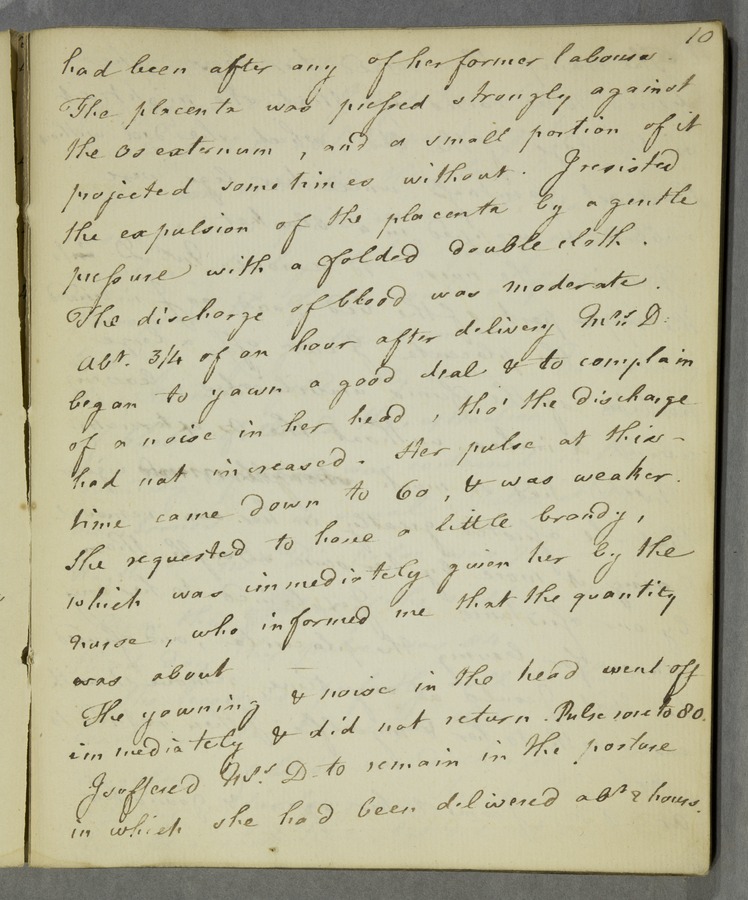 10
had been after any of her former labours.
The placenta was pressed strongly against
the os externum, and a small portion of it
projected sometimes without. I resisted
the expulsion of the placenta by a gentle
pressure with a folded double cloth.
The discharge of blood was moderate.
Abt. 3/4 of an hour after delivery Mrs. D.
began to yawn a good deal & to complain
of a noise in her head, tho' the discharge
had not increased. Her pulse at this-
time came down to 60, & was weaker.
She requested to have a little brandy,
which was immediately given her by the
nurse, who informed me that the quantity
was about
The yawning & noise in the head went off
immediately & did not return. Pulse rose to 80.
I suffered Mrs. D. to remain in the posture
in which she had been delivered abt 2 hours.